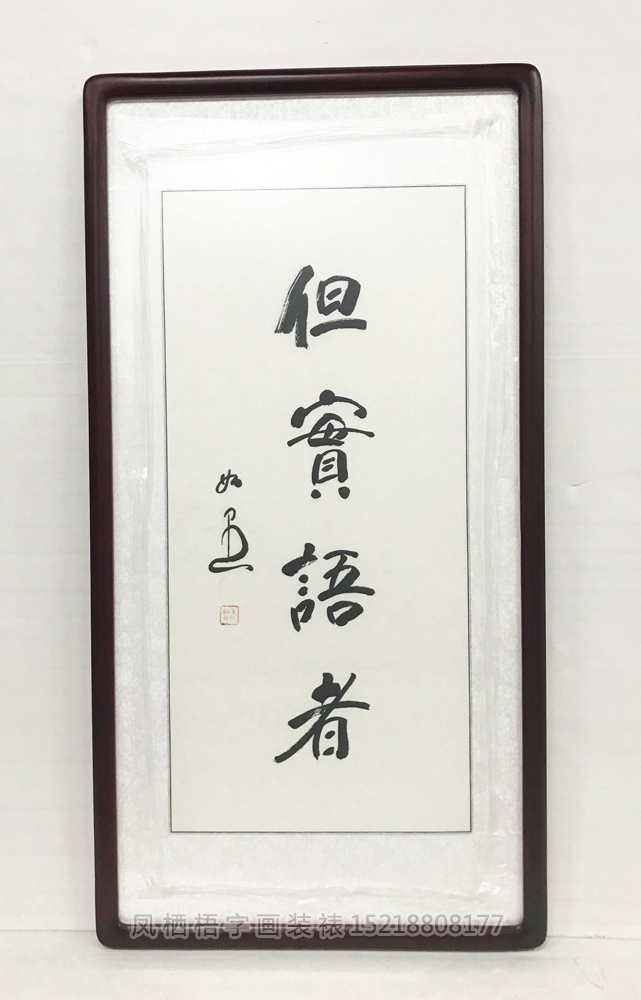 但實語者
凤栖梧字画装裱15218808177